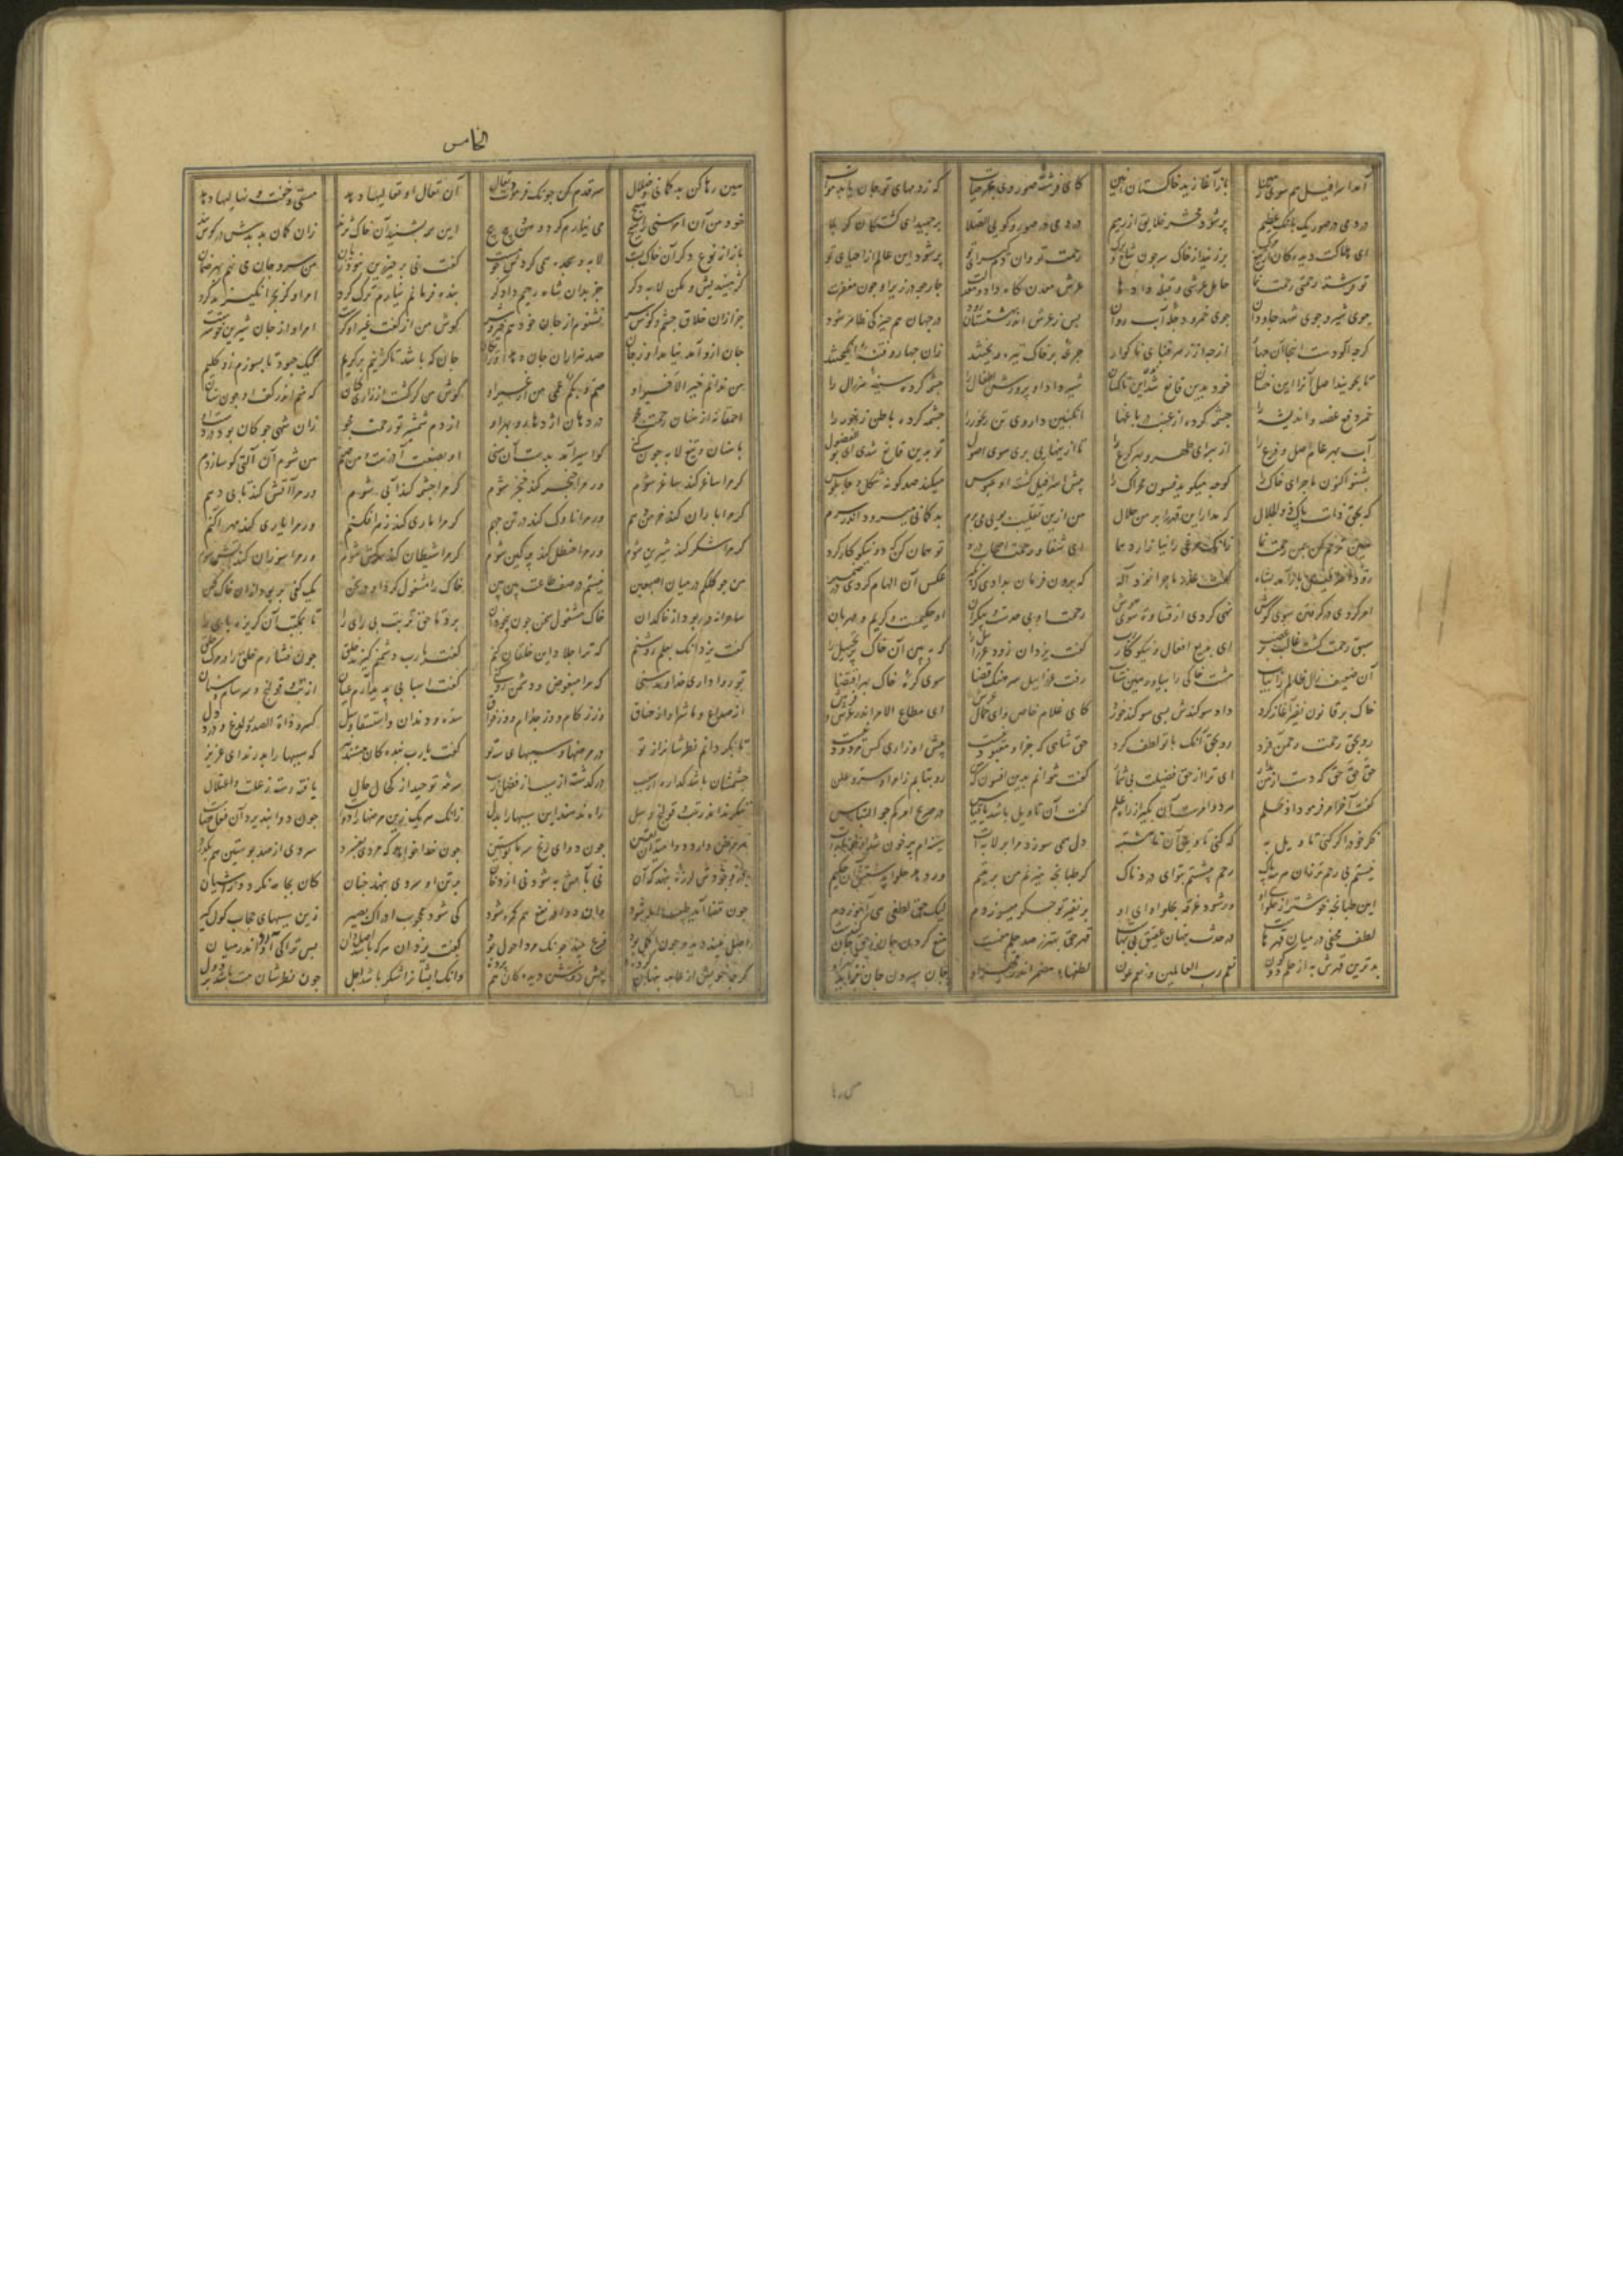 آمد اسرافیل هم سوی زمین باز آغازید خاکستان حنین کای فرشته صور و ای بحر حیات که ز دمهای تو جان یابد موات
در دمی در صور یک بانگ عظیم پر شود محشر خلایق از رمیم در دمی در صور و گویی الصلا برجهید ای کشتگان کربلا
ای هلاکت دیدگان از تیغ مرگ برزنید از خاک سر چون شاخ و برگ رحمت تو وان دم گیرای تو پر شود این عالم از احیای تو
تو فرشته رحمتی رحمت نما حامل عرشی و قبله دادها عرش معدن گاه داد و معدلت چار جو در زیر او چون مغفرت
جوی شیر و جوی شهد جاودان جوی خمر و دجله آب روان پس ز عرش اندر بهشتستان رود در جهان هم چیزکی ظاهر شود
گرچه آلودست اینجا آن چهار از چه از زهر فنای ناگوار جرعه بر خاک تیره ریختند زان چهار و فتنه انگیختند
تا بجویند اصل آنرا این خسان خود بدین قانع شدند این ناکسان شیر داد او پرورش اطفال را چشمه کرده سینه هر زال را
خمر دفع غصه و اندیشه را چشمه کرده از عنب باغها انگبین داروی تن رنجور را چشمه کرده باطن زنبور را
آب بهر عام اصل و فرع را از برای طهر و بهر کرع را تا ازینها پی بری سوی اصول تو بدین قانع شدی ای بوالفضول
بشنو اکنون ماجرای خاک را کو چه میگوید فسون محراک را پیش اسرافیل گشت او عبوس میکند صد گونه شکل و چاپلوس
که بحق ذات پاک ذوالجلال که مدار این قهر را بر من حلال من ازین تقلیب بویی می برم بدگمانی میرود اندر سرم
زانک مرغی را نیازارد هما ای شفا و رحمت اصحاب درد تو همان کن کان دو نیکو کار کرد
باز آمد بشاه گفت عذر و ماجرا نزد آله که برون فرمان بدادی که بگیر عکس آن الهام کردی در ضمیر
امر کردی در گرفتن سوی گوش نهی کردی از قساوت سوی هوش رحمت او بی حدست و بیکران او حکیمست و کریم و مهربان
سبق رحمت گشت غالب بر غضب ای بدیع افعال و نیکو کار رب گفت یزدان زود عزراییل را که ببین آن خاک پر تخییل را
آن ضعیف زال ظالم را بیاب مشت خاکی را بیاور هین شتاب رفت عزراییل سرهنگ قضا سوی کره خاک بهر اقتضا
خاک بر قانون نفیر آغاز کرد داد سوگندش بسی سوگند خورد کای غلام خاص و ای حمال عرش ای مطاع الامر اندر عرش و فرش
رو بحق رحمت رحمن فرد رو بحق آنک با تو لطف کرد حق شاهی که جز او معبود نیست پیش او زاری کس مردود نیست
حق حق حق که دست از من بدار ای ترا از حق فضیلت بی شمار گفت نتوانم بدین افسون که من رو بتابم زامر او سر و علن
گفت آخر امر فرمود او بحلم هر دو امرند آن بگیر از راه علم گفت آن تاویل باشد یا قیاس در صریح امر کم جو التباس
فکر خود را گر کنی تاویل به که کنی تاویل آن نامشتبه دل همی سوزد مرا بر لابه ات سینه ام پر خون شد
نیستم بی رحم رحم بیشستم بتو ای دردناک گر طبانچه میزنم من بر یتیم ور دهد حلوا بدستش آن حلیم
این طبانچه خوشتر از حلوای او ور شود غره بحلوا وای او بر نفیر تو جگر میسوزدم لیک حق لطفی همی آموزدم
لطف مخفی در میان قهرها در حدث پنهان عقیق بی بها قهر حق بهتر ز صد حلم منست منع کردن جان ز حق جان کندنست
بدترین قهرش به از حلم دو کون نعم رب العالمین و نعم عون لطفهای مضمر اندر قهر او جان سپردن جان فزاید بهر او
الخامس
هین رها کن بدگمانی و ضلال سر قدم کن چونک فرمودت تعال آن تعال او تعالیها دهد مستی و جفت و نهالیها دهد
خود من آن امر سنی را هیچ هیچ می نیارم کرد وهن و پیچ پیچ این همه بشنید آن خاک نژند زان گمان بد بدش در گوش بند
باز از نوع دگر آن خاک پست لابه و سجده همی کرد گفت نی برخیز نبود زین زیان من سر و جان می نهم رهن و ضمان
کژ میندیش و مکن لابه دگر جز بدان شاه رحیم دادگر بنده فرمانم نیارم ترک کرد امر او کز بحر انگیزید گرد
جز از آن خلاق چشم و گوش نشنوم از جان خود هم گوش من از گفت غیر او کرست امر او از جان شیرین خوشترست
جان ازو آمد نیامد او ز جان صد هزاران جان دهد او رایگان جان که باشد تا گزینم بر کریم کیک چبود تا بسوزم زو گلیم
من ندانم خیر الا خیر او صم و بکم و عمی من از غیر او گوش من کرست از زاری کنان که منم اندر کف او چون سنان
احمقانه از سنان رحمت مجو در دهان اژدها رو بهر او از دم شمشیر تو رحمت مجو زان شهی جو کان بود در دست او
با سنان و تیغ لابه چون کنی کو اسیر آمد بدست آن سنی او بصنعت آزرست و من صنم من شوم آن آلتی کو سازدم
گر مرا ساغر کند ساغر شوم ور مرا خنجر کند خنجر شوم گر مرا چشمه کند آبی شوم ور مرا آتش کند تابی دهم
گر مرا باران کند خرمن دهم ور مرا ناوک کند در تن جهم گر مرا ماری کند زهر افکنم ور مرا یاری کند مهر آکنم
گر مرا شکر کند شیرین شوم ور مرا حنظل کند پر کین شوم گر مرا شیطان کند سرکش شوم ور مرا سوزان کند آتش شوم
من چو کلکم در میان اصبعین نیستم در صف طاعت بین بین خاک را مشغول کرد او در سخن یک کفی بربود از آن خاک کهن
ساحرانه در ربود از خاکدان خاک مشغول سخن چون بیخودان برد تا حق تربت بی رای را تا بمکتب آن گریزان پای را
گفت یزدان بعلم روشنم که ترا جلاد این خلقان کنم گفت یارب دشمنم گیرند خلق چون فشارم خلق را در مرگ حلق
تو روا داری خداوند سنی که مرا مبغوض و دشمن رو کنی گفت اسبابی پدید آرم عیان از تب و قولنج و سرسام و سنان
تا بگردانم نظرشان را ز تو در مرضها و سببهای سه تو گفت یارب بندگان هستند که سببها را بدرند ای عزیز
چشمشان باشد گذاره از سبب در گذشته از سبب از فضل رب سرمه توحید از کحال حال یافته رسته ز علت و اعتلال
ننگرند اندر تب و قولنج و سل راه ندهند این سببها را بدل زانک هر یک زین مرضها را دواست چون دوا نپذیرد آن فعل قضاست
هر مرض دارد دوا میدان یقین چون دوای رنج سرما پوستین چون خدا خواهد که مردی بفسرد سردی از صد پوستین هم بگذرد
در وجودش لرزه بنهد که آن نی بآتش به شود نی از دخان بر تن او سردی بنهد چنان کان بجامه نگردد و آشیان
چون قضا آید طبیب ابله شود وان دوا در نفع هم گمره شود کی شود محجوب ادراک بصیر زین سببهای حجاب گول گیر
اصل بیند دیده چون اکمل بود فرع بیند چونک مرد احول بود گفت یزدان هر که باشد اصل دان پس ترا کی بیند او اندر میان
گرچه خویش از عامه پنهان کرده پیش روشن دیدگان هم پرده وانک ایشان را شکر باشد اجل چون نظرشان مست باشد در دول